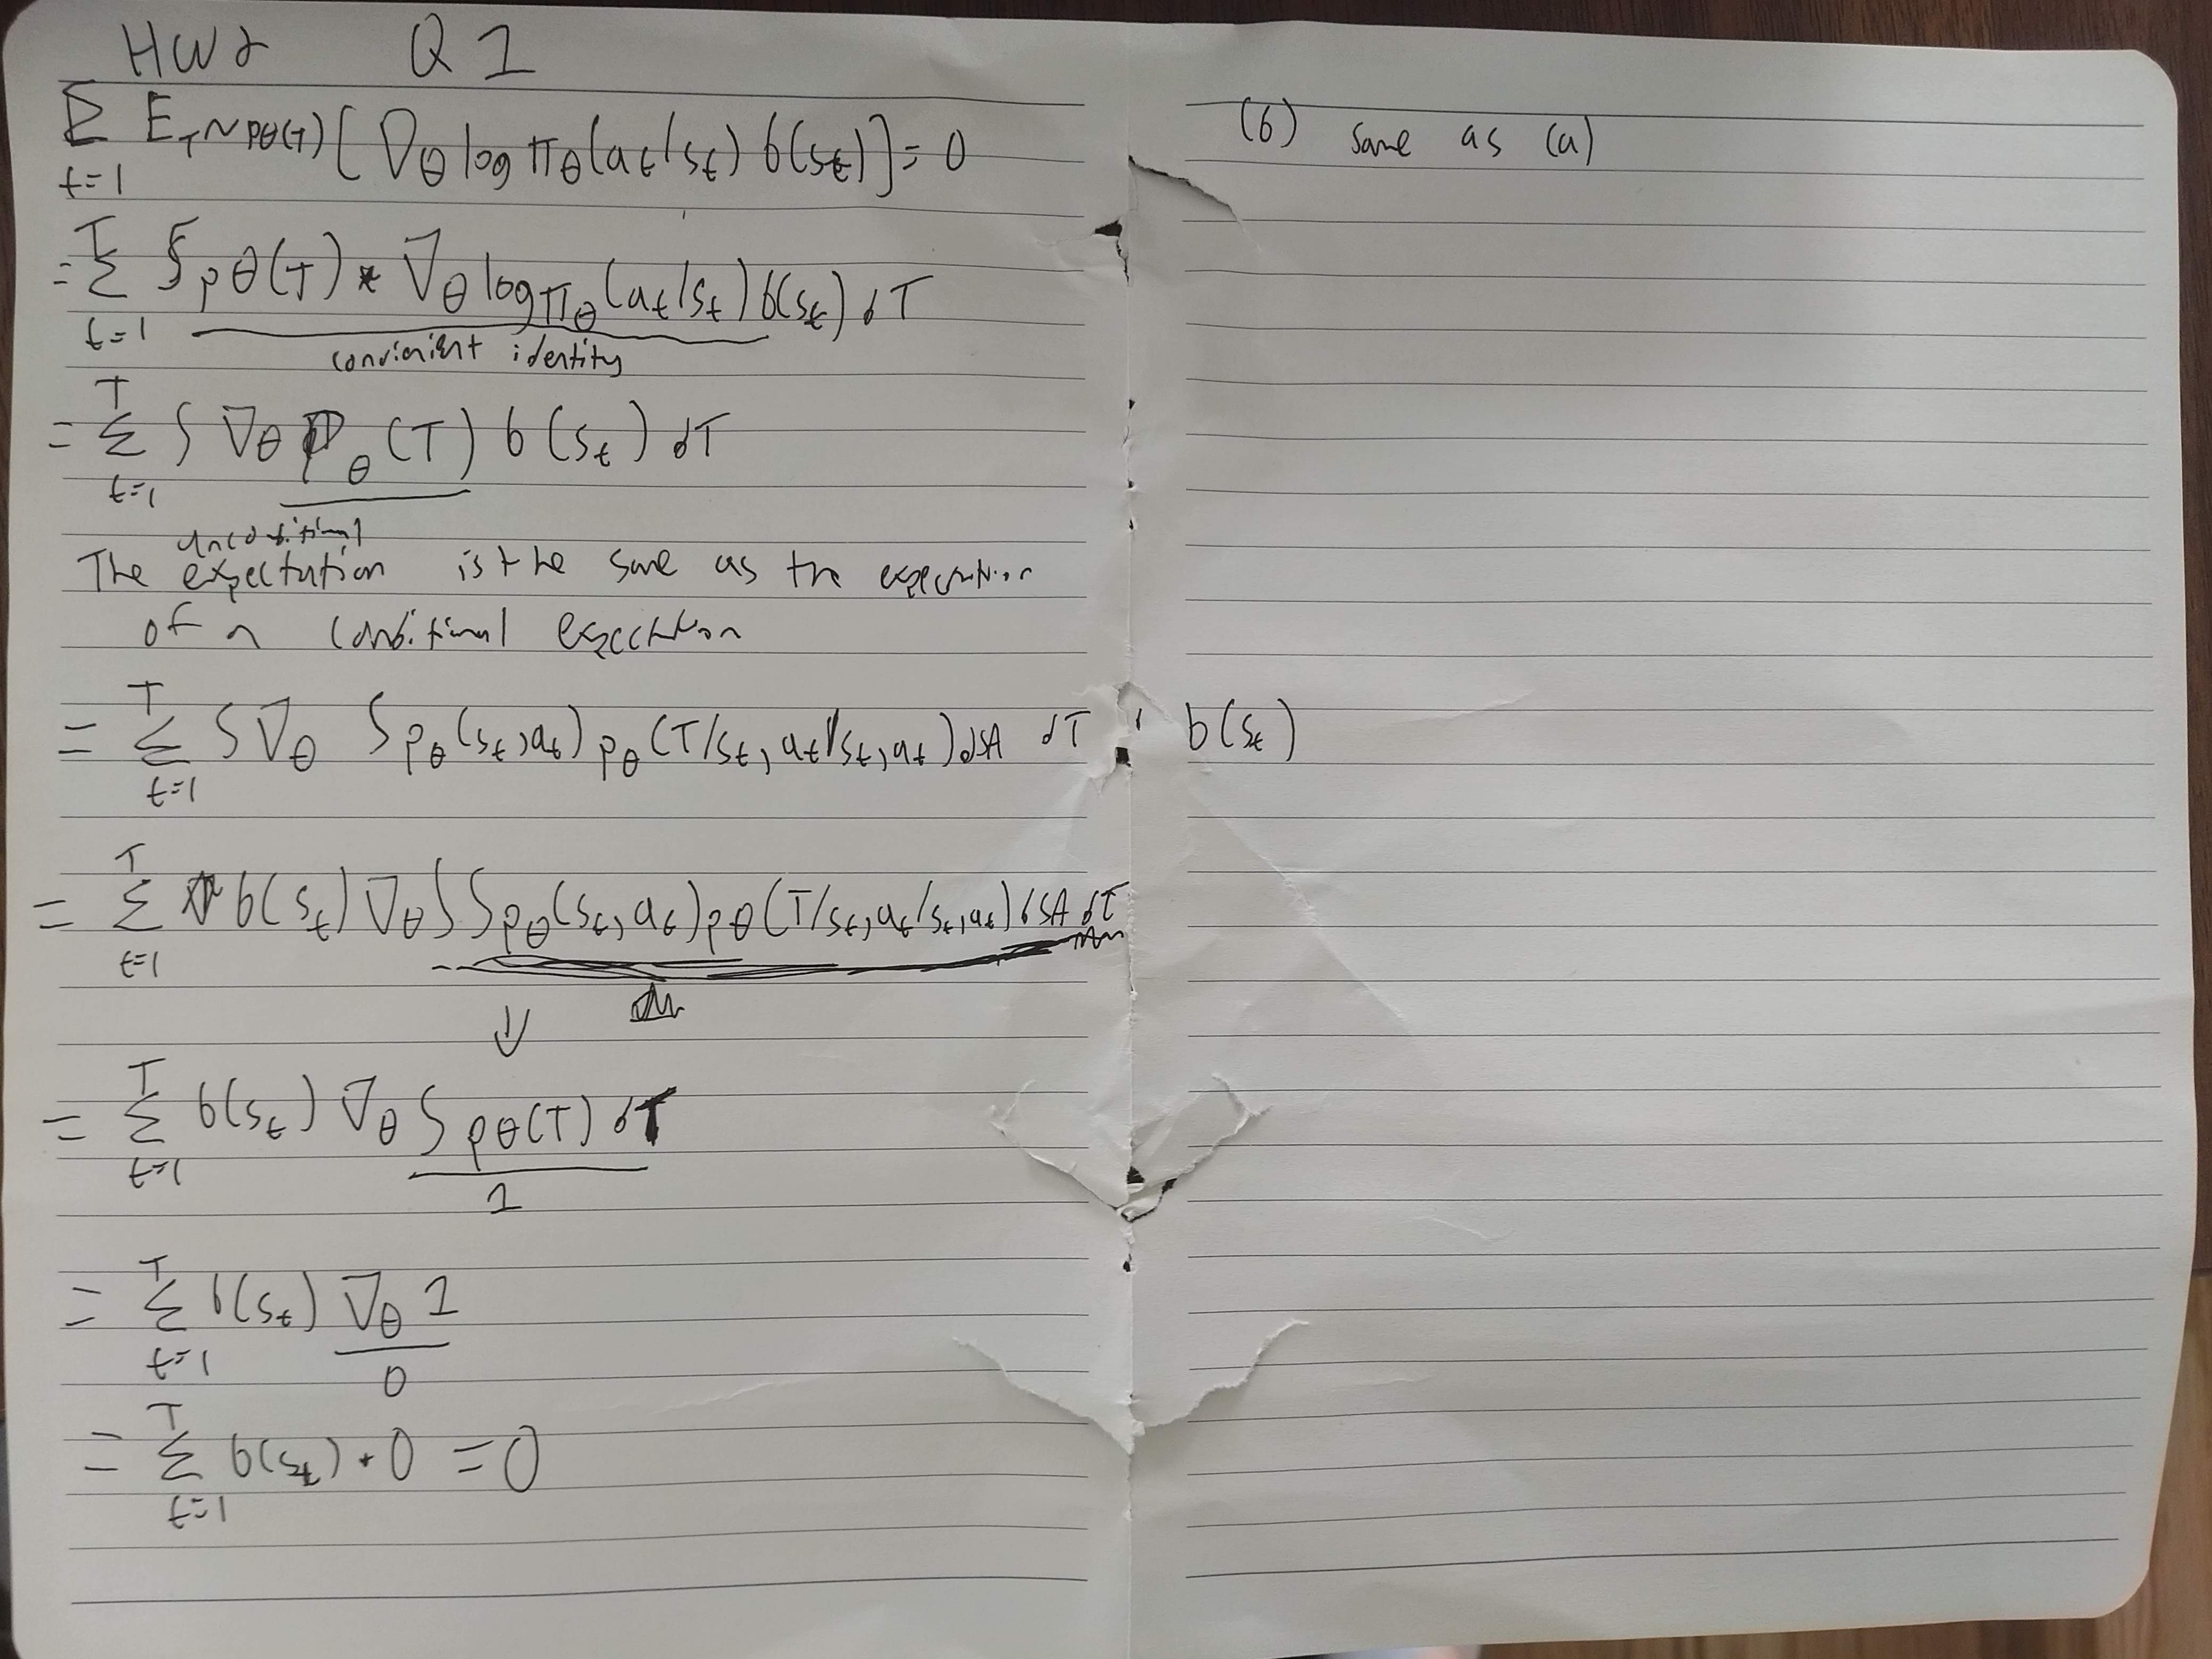 HW2 Q1
∑ t=1 E_T~pθ(T) [∇θ log πθ(at/st) b(st)] = 0
= T∑t=1 ∫ pθ(T) * ∇θ log πθ(at/st) b(st) dT
convienient identity
= T∑t=1 ∫ ∇θ pθ(T) b(st) dT
unconditional
The expectation is the same as the expectation
of a conditional expectation
= T∑t=1 ∫ ∇θ ∫ pθ(st, at) pθ(T/st, at/st, at) dSA dT · b(st)
= T∑t=1 b(st) ∇θ ∫ ∫ pθ(st, at) pθ(T/st, at/st, at) dSA dT
↓
= T∑t=1 b(st) ∇θ ∫ pθ(T) dT
1
= T∑t=1 b(st) ∇θ 1
0
= T∑t=1 b(st) · 0 = 0
(b) same as (a)